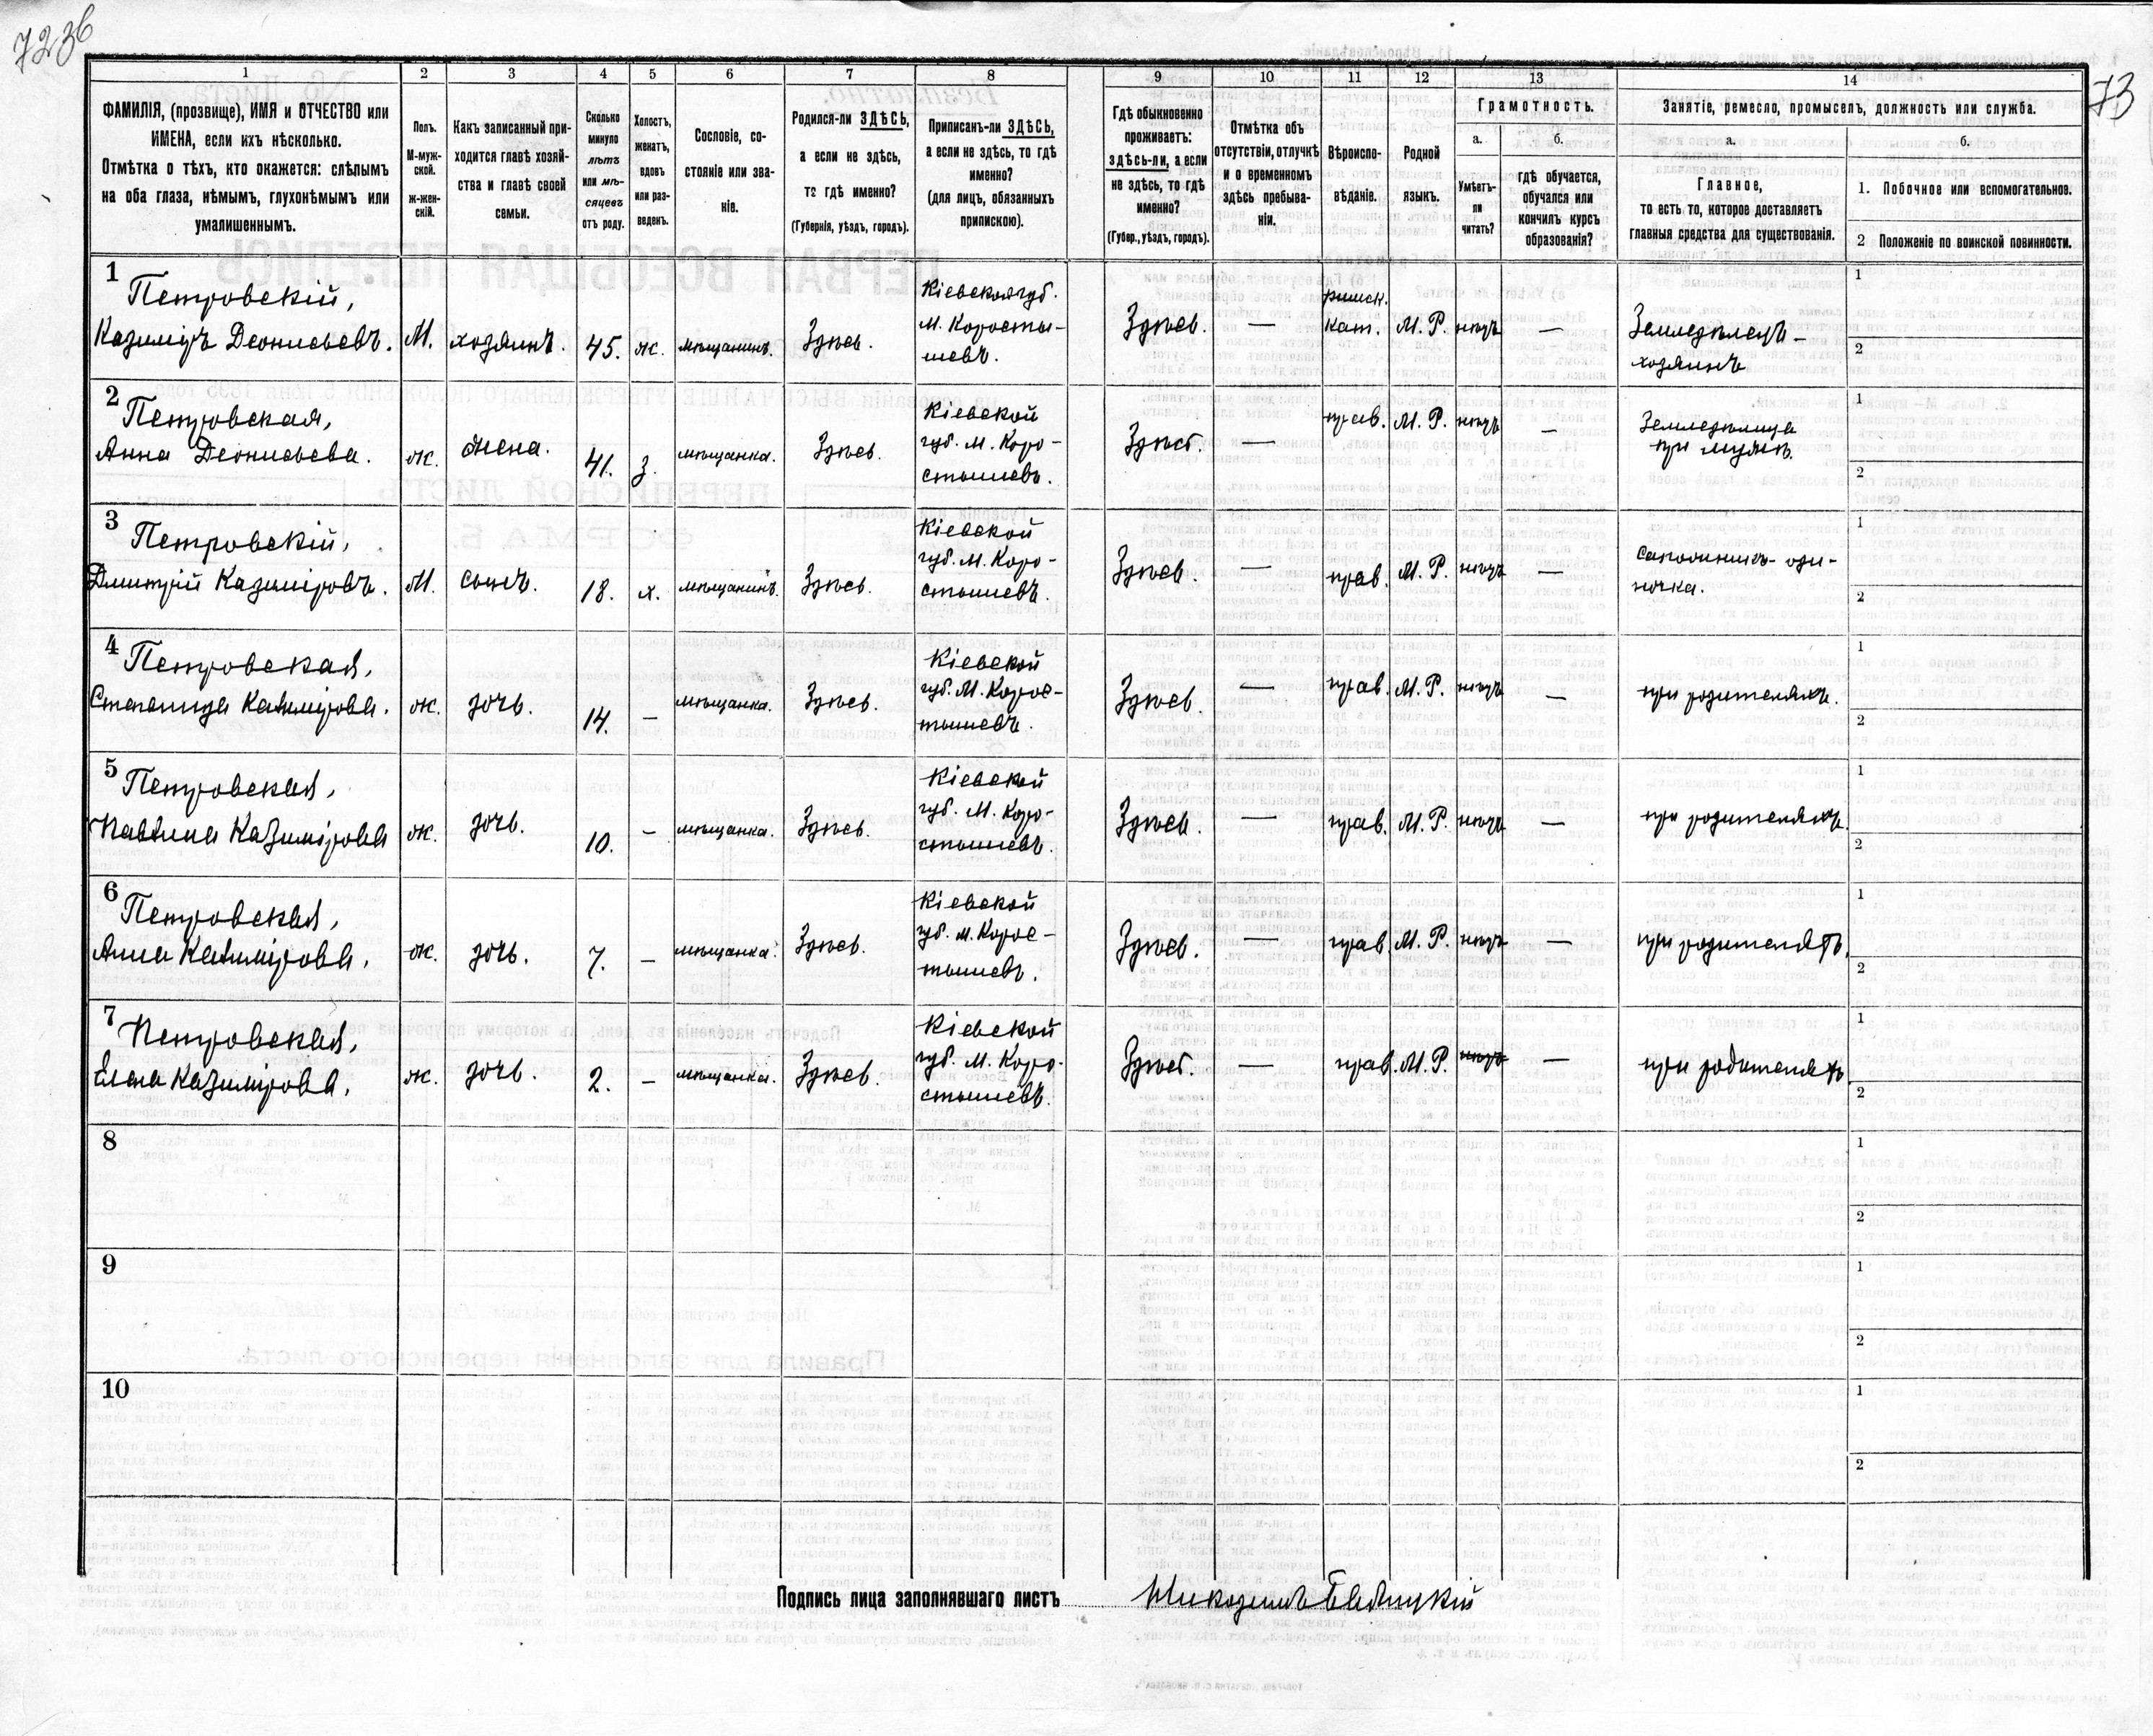 72 зв
73
1
2
3
4
5
6
7
8
9
10
11
12
13
14
ФАМИЛІЯ, (прозвище), ИМЯ и ОТЧЕСТВО или
ИМЕНА, если ихъ нѣсколько.
Отмѣтка о тѣхъ, кто окажется: слѣпымъ
на оба глаза, нѣмымъ, глухонѣмымъ или
умалишеннымъ.
Полъ.
М-муж-
ской.
ж-жен-
скій.
Какъ записанный при-
ходится главѣ хозяй-
ства и главѣ своей
семьи.
Сколько
минуло
лѣтъ
или мѣ-
сяцевъ
отъ роду.
Холостъ,
женатъ,
вдовъ
или раз-
веденъ.
Сословіе, со-
стояніе или зва-
ніе.
Родился-ли ЗДѢСЬ,
а если не здѣсь,
то гдѣ именно?
(Губернія, уѣздъ, городъ).
Приписанъ-ли ЗДѢСЬ,
а если не здѣсь, то гдѣ
именно?
(для лицъ, обязанныхъ
припискою).
Гдѣ обыкновенно
проживаетъ:
здѣсь-ли, а если
не здѣсь, то гдѣ
именно?
(Губер., уѣздъ, городъ).
Отмѣтка объ
отсутствіи, отлучкѣ
и о временномъ
здѣсь пребыва-
ніи.
Вѣроиспо-
вѣданіе.
Родной
языкъ.
Грамотность.
а.
Умѣетъ-
ли
читать?
б.
гдѣ обучается,
обучался или
кончилъ курсъ
образованія?
Занятіе, ремесло, промыселъ, должность или служба.
а.
Главное,
то есть то, которое доставляетъ
главныя средства для существованія.
б.
1. Побочное или вспомогательное.
2 Положеніе по воинской повинности.
1
Петровскій,
Казиміръ Деонисьевъ.
М.
хозяинъ.
45.
ж.
мѣщанинъ.
Здѣсь.
Кіевской губ.
М. Коросты-
шевъ.
Здѣсь.
—
римск.
кат.
М. Р.
нѣтъ
—
Земледѣлецъ -
хозяинъ
1
2
2
Петровская,
Анна Деонисьева.
ж.
жена.
41.
З.
мѣщанка.
Здѣсь.
Кіевской
губ. М. Коро-
стышевъ.
Здѣсь.
—
прав.
М. Р.
нѣтъ
—
Земледѣлица
при мужѣ.
1
2
3
Петровскій,
Дмитрій Казиміровъ.
М.
сынъ.
18.
х.
мѣщанинъ.
Здѣсь.
Кіевской
губ. М. Коро-
стышевъ.
Здѣсь.
—
прав.
М. Р.
нѣтъ
—
Сапожникъ- оди-
ночка.
1
2
4
Петровская,
Степанида Казимірова.
ж.
дочь.
14.
—
мѣщанка.
Здѣсь.
Кіевской
губ. М. Корос-
тышевъ.
Здѣсь.
—
прав.
М. Р.
нѣтъ
—
при родителяхъ.
1
2
5
Петровская,
Павлина Казимірова
ж.
дочь.
10.
—
мѣщанка.
Здѣсь.
Кіевской
губ. М. Коро-
стышевъ.
Здѣсь.
—
прав.
М. Р.
нѣтъ
—
при родителяхъ.
1
2
6
Петровская,
Анна Казимірова,
ж.
дочь.
7.
—
мѣщанка.
Здѣсь.
Кіевской
губ. м. Корос-
тышевъ.
Здѣсь.
—
прав.
М. Р.
нѣтъ
—
при родителяхъ.
1
2
7
Петровская,
Елена Казимірова,
ж.
дочь.
2.
—
мѣщанка.
Здѣсь.
Кіевской
губ. М. Коро-
стышевъ.
Здѣсь.
—
прав.
М. Р.
нѣтъ
—
при родителяхъ
1
2
8
1
2
9
1
2
10
1
2
Подпись лица заполнявшаго листъ